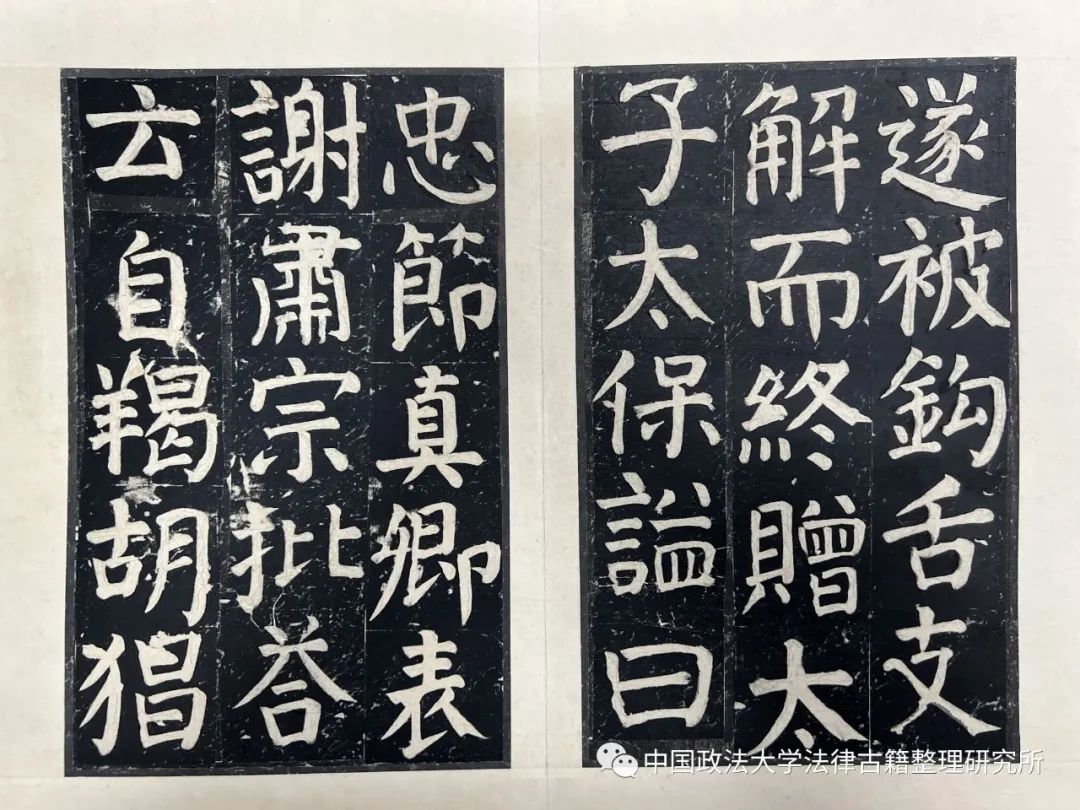 遂被鈎舌支
解而終贈太
子太保謚曰
忠節真卿表
謝肅宗批荅
云自羯胡猖
中国政法大学法律古籍整理研究所